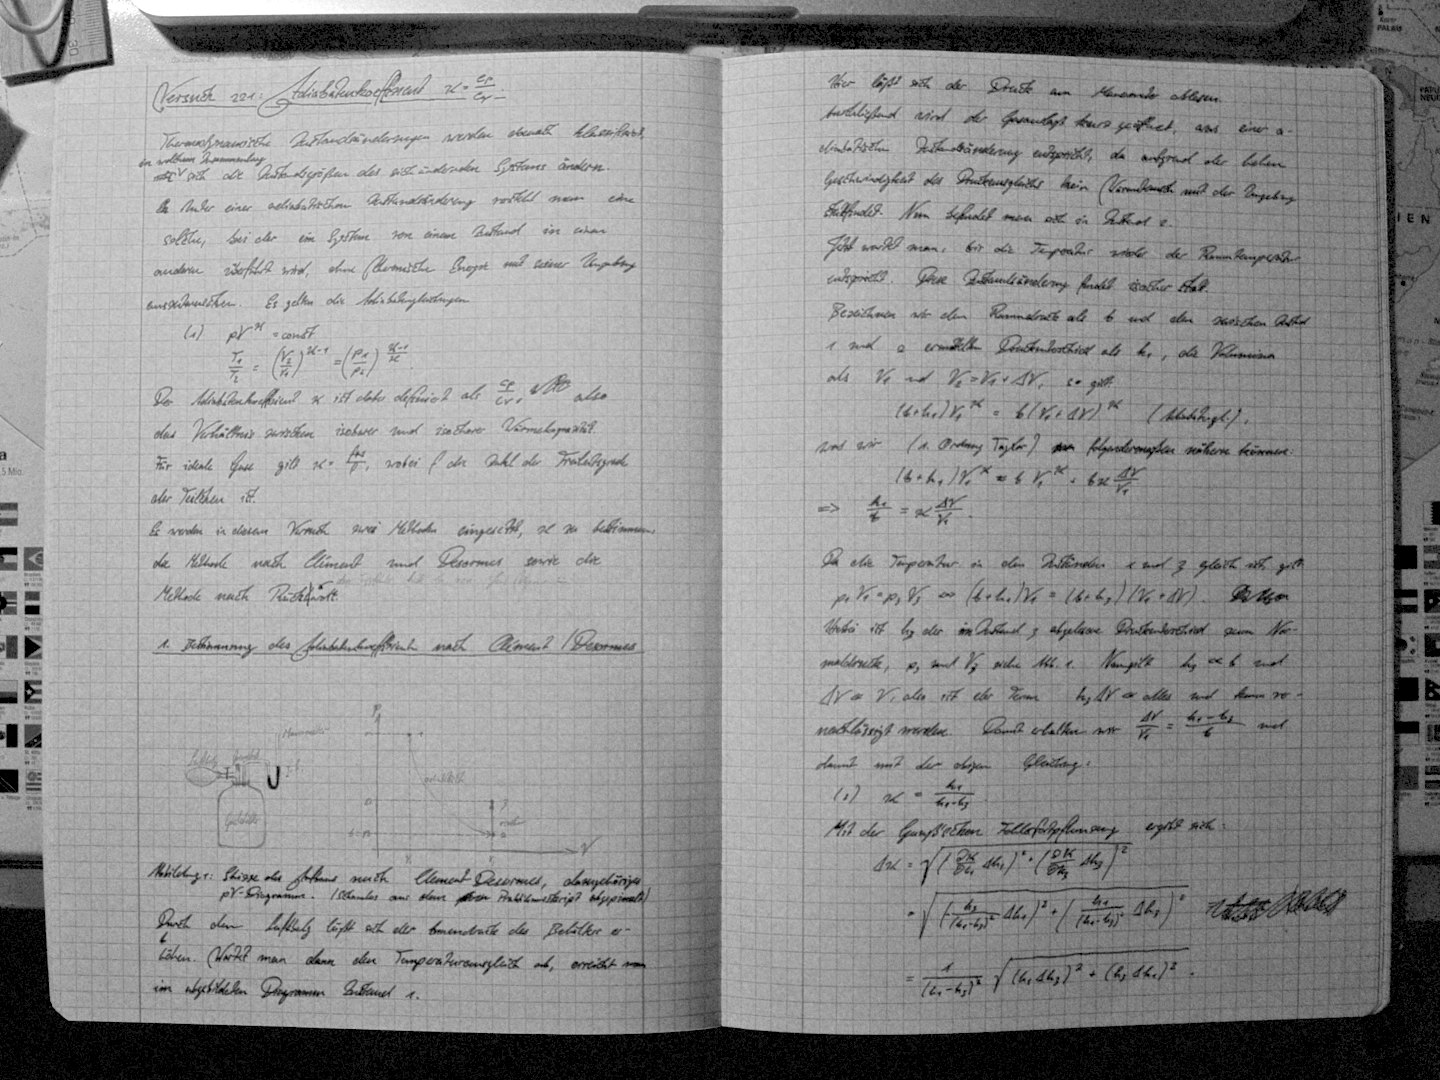 Versuch 221: Adiabatenkoeffizient ϰ = cp/cv
Thermodynamische Zustandsänderungen werden danach klassifiziert,
in welchem Zusammenhang
sich die Zustandsgrößen des sich ändernden Systems ändern.
Unter einer adiabatischen Zustandsänderung versteht man eine
solche, bei der ein System von einem Zustand in einen
anderen überführt wird, ohne thermische Energie mit seiner Umgebung
auszutauschen. Es gelten die Adiabatengleichungen
(1) pV^ϰ = const
T1/T2 = (V2/V1)^(ϰ-1) = (p1/p2)^((ϰ-1)/ϰ)
Der Adiabatenkoeffizient ϰ ist dabei definiert als cp/cv, also
das Verhältnis zwischen isobarer und isochorer Wärmekapazität.
Für ideale Gase gilt ϰ = (f+2)/f, wobei f die Zahl der Freiheitsgrade
der Teilchen ist.
Es werden in diesem Versuch zwei Methoden eingesetzt, ϰ zu bestimmen,
die Methode nach Clément und Desormes sowie die
Methode nach Rüchardt.
1. Bestimmung des Adiabatenkoeffizienten nach Clément / Desormes
p
Manometer
1
adiabatisch
3
2
V
Abbildung 1: Skizze des Aufbaus nach Clement Desormes, dazugehöriges
pV-Diagramm. (Schamlos aus dem Praktikumsskript abgepinselt)
Durch den Luftbalg läßt sich der Innendruck des Behälters er-
höhen. Wartet man dann den Temperaturausgleich ab, erreicht man
im abgebildeten Diagramm Zustand 1.
Hier läßt sich der Druck am Manometer ablesen.
Anschließend wird der Gasauslaß kurz geöffnet, was einer a-
diabatischen Zustandsänderung entspricht, da aufgrund der hohen
Geschwindigkeit des Druckausgleichs kein Wärmetausch mit der Umgebung
stattfindet. Nun befindet man sich in Zustand 2.
Jetzt wartet man, bis die Temperatur wieder der Raumtemperatur
entspricht. Diese Zustandsänderung findet isochor statt.
Bezeichnen wir den Raumdruck als b und den zwischen Zustand
1 und 2 ermittelten Druckunterschied als h1, die Volumina
als V1 und V2 = V1 + ΔV, so gilt
(b+h1)V1^ϰ = b(V1+ΔV)^ϰ (Adiabatengl.),
was wir (1. Ordnung Taylor) folgendermaßen nähern können:
(b+h1)V1^ϰ = bV1^ϰ + bϰ ΔV/V1
=> h1/b = ϰ ΔV/V1.
Da die Temperatur in den Zuständen 1 und 3 gleich ist, gilt
p1V1 = p3V3 ⇔ (b+h1)V1 = (b+h3)(V1+ΔV).
Wobei ist h3 der im Zustand 3 abgelesene Druckunterschied zum Nor-
maldruck, p3 und V3 siehe Abb. 1. Nun gilt h3 ≪ b und
ΔV ≪ V, also ist der Term h3ΔV ≪ alles und kann ver-
nachlässigt werden. Damit erhalten wir ΔV/V1 = (h1-h3)/b und
damit mit der obigen Gleichung:
(2) ϰ = h1/(h1-h3).
Mit der Gaußschen Fehlerfortpflanzung ergibt sich:
Δϰ = √((∂ϰ/∂h1 Δh1)² + (∂ϰ/∂h3 Δh3)²)
= √((-h3/(h1-h3)² Δh1)² + (h1/(h1-h3)² Δh3)²)
= 1/(h1-h3)² √((h1Δh3)² + (h3Δh1)²).